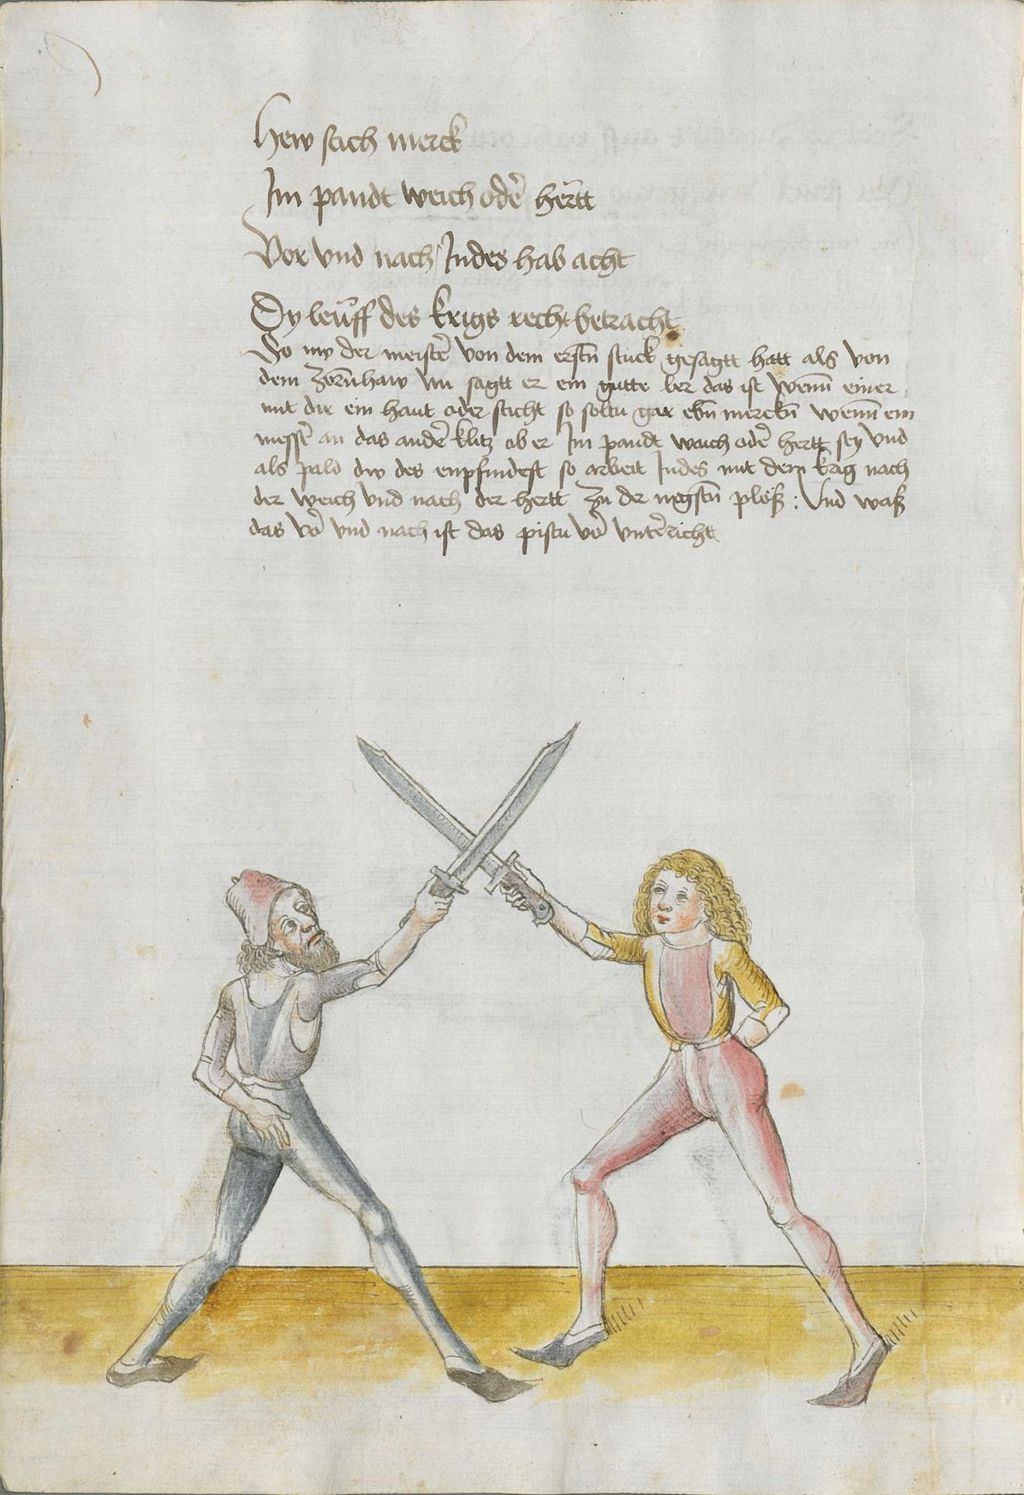 Hew stich merck
Im pandt weich oder hertt
Vor vnd nach Indes hab acht
Dy leuff des krigs recht betracht
So nu der meister von dem erstn stuck gesagtt hatt als von
dem zornhaw Nu sagtt er ein gutte ler das ist Wenn einer
mit dir ein haut oder sticht so soltu gar ebn merckn wenn ein
messer an das ander klitz ob er Im pandt waich oder hertt sey vnd
als pald dw des enpfindest so arbeit Indes mit dem krig nach
der weich vnd nach der hertt zu der negstn plöß : Vnd waß
das vor vnd nach ist das pistu vor vnterricht